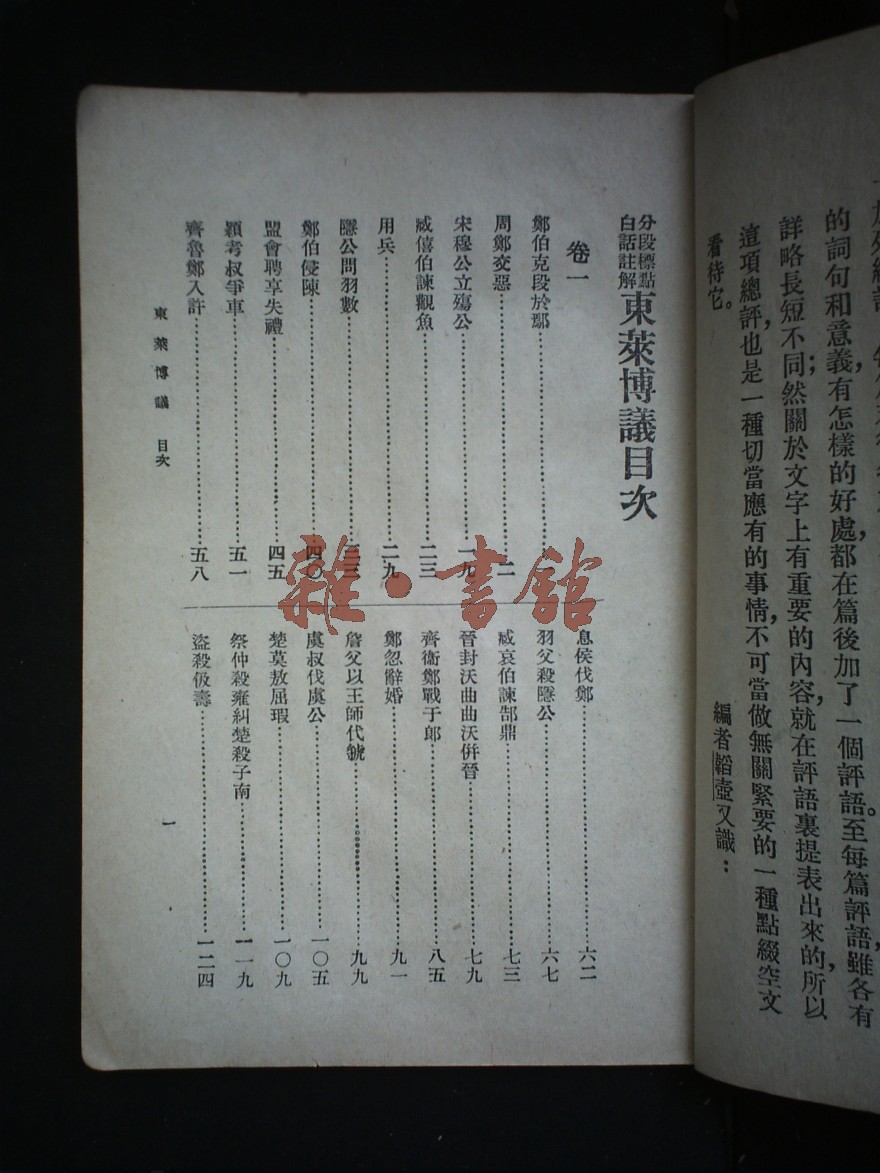 的詞句和意義,有怎樣的好處,都在篇後加了一個評語。至每篇評語,雖各有
詳略長短不同;然關於文字上有重要的內容,就在評語裏提表出來的,所以
這項總評,也是一種切當應有的事情,不可當做無關緊要的一種點綴空文
看待它。
編者韜壺又識:
分段標點
白話註解
東萊博議目次
卷一
鄭伯克段於鄢……一
周鄭交惡……一二
宋穆公立殤公……一九
臧僖伯諫觀魚……二三
用兵……二九
隱公問羽數……三三
鄭伯侵陳……四〇
盟會聘享失禮……四五
潁考叔爭車……五一
齊魯鄭入許……五八
息侯伐鄭……六二
羽父殺隱公……六七
臧哀伯諫郜鼎……七三
晉封沃曲曲沃併晉……七九
齊衞鄭戰于郎……八五
鄭忽辭婚……九一
詹父以王師伐虢……九九
虞叔伐虞公……一〇五
楚莫敖屈瑕……一〇九
祭仲殺雍糾楚殺子南……一一九
盜殺伋壽……一二四
東萊博議 目次
一
雜·書館